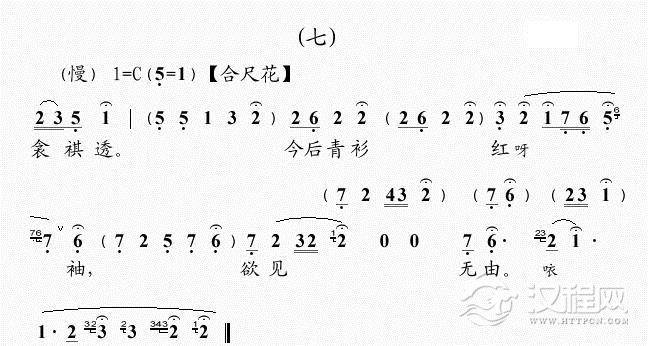 (七)
(慢) 1=C(5=1)【合尺花】
2 3 5 1 | (5 5 1 3 2) 2 6 2 2 (2 6 2 2) 3 2 1 7 6 5 6
衾 祺 透。 今后青衫 红 呀
(7 2 43 2) (7 6) (2 3 1)
76 7 6 (7 2 5 7 6) 7 2 32 1 2 0 0 7 6· 23 2 1·
袖, 欲 见 无 由。 咴
1· 2 32 3 2 3 343 2 1 2
汉程网
WWW.HTTPCN.COM